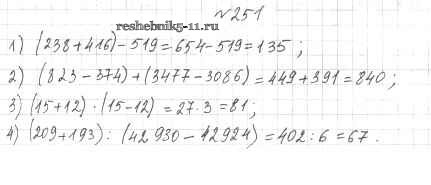 №251
reshebnik5-11.ru
1) (238+416)-519=654-519=135;
2) (823-374)+(3477-3086)=449+391=840;
3) (15+12)·(15-12)=27·3=81;
4) (209+193):(42930-42924)=402:6=67.